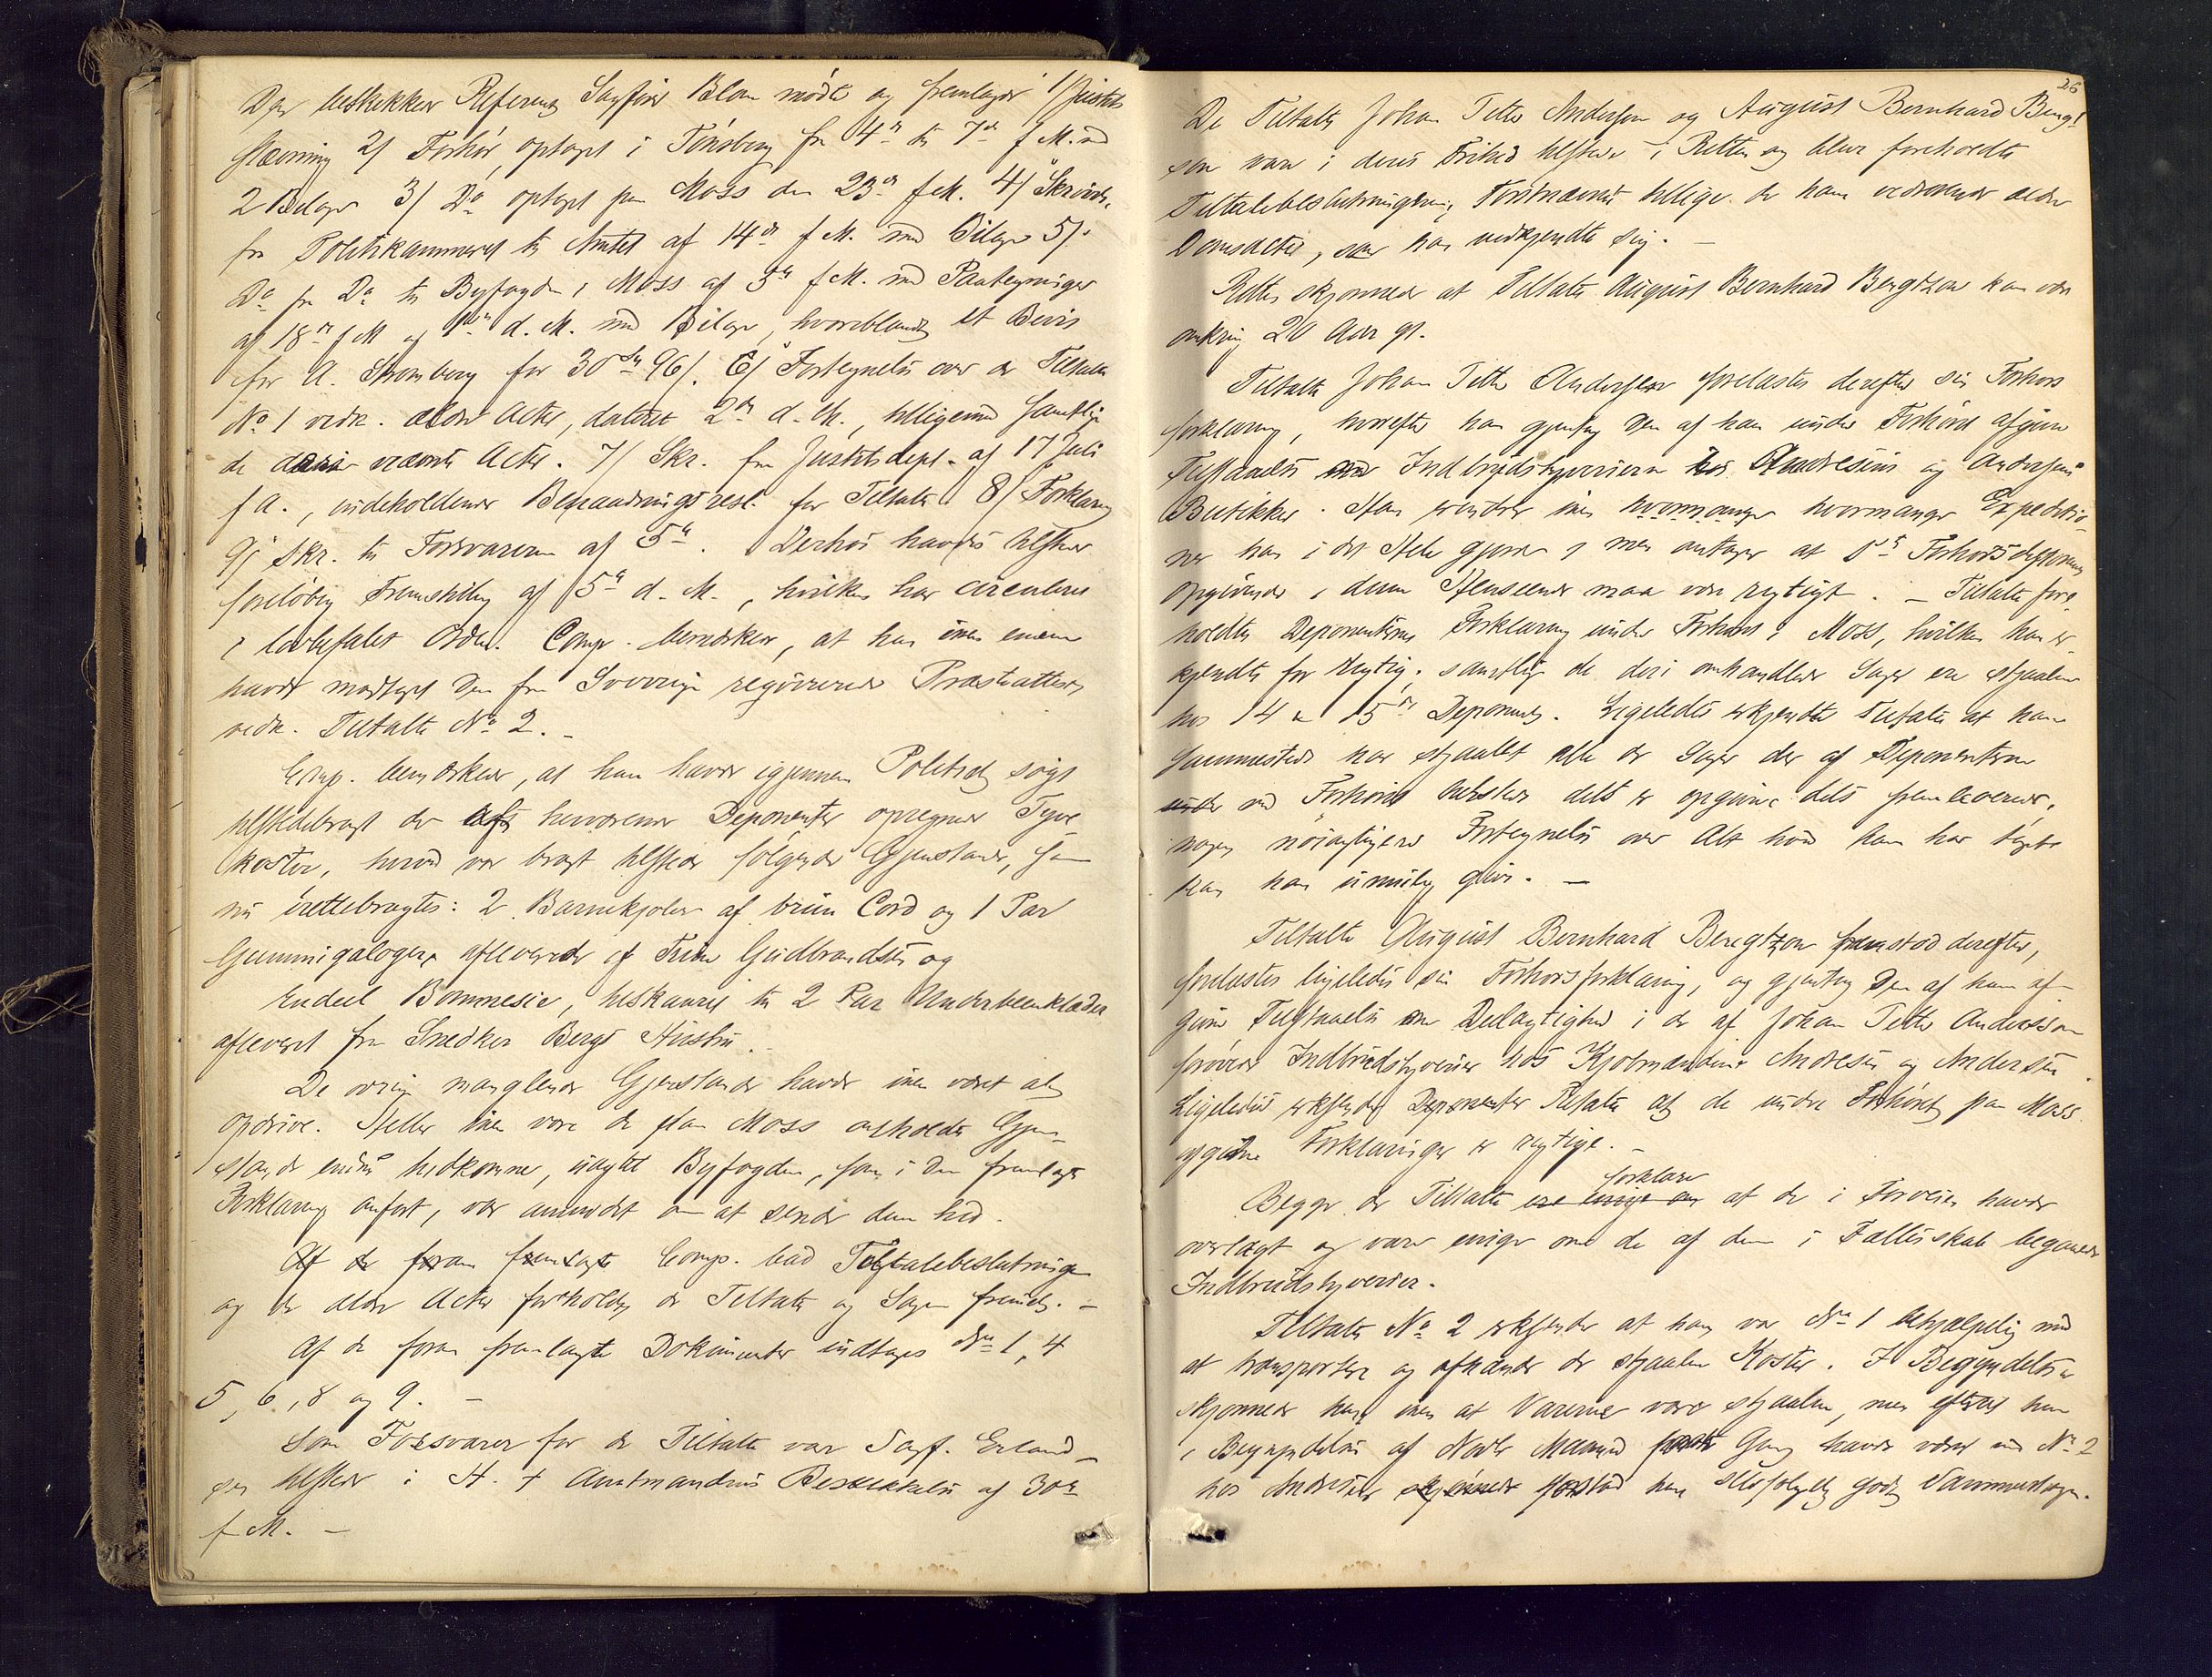 Den beskikkede Referent Sagfører Blom mødte og fremlagde 1/ Justits
stævning 2/ Forhør, optaget i Tønsberg fra 4de til 7de f. M. med
2 Bilage 3/ Do optaget paa Moss den 23de f. M. 4/ Skrivelse
fra Politikammeret til Amtet af 14de f. M. med Bilage 5/
Do fra Do til Byfogden i Moss af 3die f. M. med Paategninger
af 18de f. M. og 1ste d. M. med Bilage, hvoriblandt et Bevis
for A. Stromberg for 30 96/. 6/ Fortegnelse over de Tiltalte
No 1 vedk. ældre Acter, dateret 2den d. M., tilligemed samtlige
de deri nævnte Acter. 7/ Skr. fra Justitsdept. af 17 Juli
f. A., indeholdende Benaadningsresl. for Tiltalte 8/ Forklaring
9/ Skr. til Forsvareren af 5te. Derhos havdes tilstede
foreløbig Fremstilling af 5te d. M., hvilken har circuleret
i lovbefalet Orden. Comp. bemærkede, at han ikke endnu
havde modtaget den fra Sverige reqvirerede Præsteattest
vedk. Tiltalte No 2. -
Comp. bemærkede, at han havde igjennem Politiet søgt
tilstedebragt de herværende Deponenter opregnede Tyve-
koster, hvoraf var bragt tilstede følgende Gjenstande, som
nu irettebragtes: 2 Barnekjoler af brun Cord og 1 Par
Gummigaloger afleverede af Trine Gudbrandsen og
Endeel Bommesie, tilskaaret til 2 Par Underbeenklæder
afleveret fra Snedker Bergs Hustru.
De øvrige manglende Gjenstande havde ikke været at
opdrive. Heller ikke vare de paa Moss anholdte Gjen-
stande endnu hidkomne, uagtet Byfogden, som i den fremlagte
Forklaring anført, var anmodet om at sende dem hid.
Af de foran fremlagte Comp. bad Tiltalebeslutningen
og de ældre Acter foreholdt de Tiltalte og Sagen fremdr. -
Af de foran fremlagte Dokumenter indtages No 1, 4
5, 6, 8 og 9. -
Som Forsvarer for de Tiltalte var Sagf. Erland-
sen tilstede i H. t. Amtmandens Beskikkelse af 30te
f. M. -
26
De Tiltalte Johan Petter Andersson og August Bernhard Bengt-
son vare i deres Frihed tilstede i Retten og bleve foreholdte
Tiltalebeslutningen, Førstnævnte tillige de ham vedkommende ældre
Domsacter, som han vedkjendte sig. -
Retten skjønnede at Tiltalte August Bernhard Bengtzon kan være
omkring 20 Aar gl.
Tiltalte Johan Petter Andersson forelæstes derefter sin Forhørs
forklaring, hvorefter han gjentog den af ham under Forhøret afgivne
Tilstaaelse om Indbrudstyverierne hos Andresens og Andersens
Butikker. Han erindrer ikke hvormange hvormange Expeditio-
ner han i det Hele gjorde, men antager at 1ste Forhørsdeponents
Opgivende i denne Henseende maa være rigtigt. - Tiltalte fore-
holdtes Deponenternes Forklaring under Forhøret i Moss, hvilken han er-
kjendte for rigtig; samtlige de deri omhandlede Sager ere stjaalne
hos 14 & 15de Deponent. Ligeledes erkjendte Tiltalte at han
sammesteds har stjaalet alle de Sager der af Deponenterne
under ved Forhøret tilstede dels er opgivne dels fremleverede,
nogen nøiagtigere Fortegnelse over Alt hvad han har taget
kan han umulig give. -
Tiltalte August Bernhard Bengtzon fremstod derefter,
forelæstes ligeledes sin Forhørsforklaring, og gjentog den af ham af-
givne Tilstaaelse om Delagtighed i de af Johan Petter Andersson
forøvede Indbrudstyverier hos Kjøbmændene Andresen og Andersen.
Ligeledes erkjendte Deponenter Tiltalte at de under Forhøret paa Moss
afgivne Forklaringer er rigtige. -
Begge de Tiltalte ere enige om forklare at de i Forveien havde
overlagt og vare enige om de af dem i Fællesskab begaaede
Indbrudstyverier.
Tiltalte No 2 erkjender at han var No 1 behjælpelig med
at transportere og afhænde de stjaalne Koster. I Begyndelsen
skjønnede han ikke at Varerne vare stjaalne, men efterat han
i Begyndelsen af Novbr Maaned første Gang havde været med No 2
hos Andresen skjønnede forstod han selvfølgelig godt Sammenhængen.